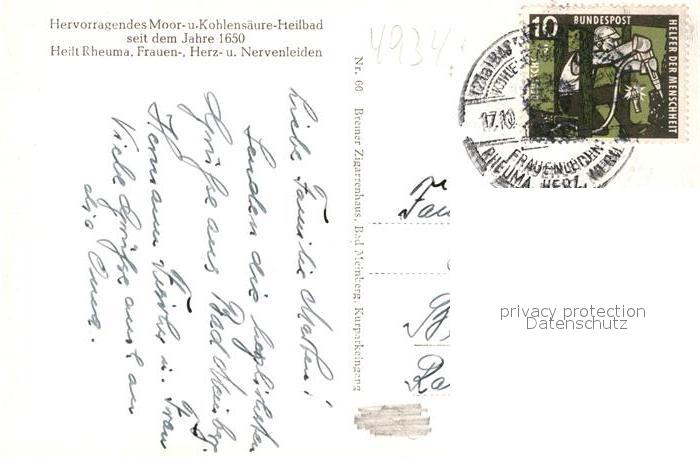 Hervorragendes Moor- u. Kohlensäure-Heilbad
seit dem Jahre 1650
Heilt Rheuma, Frauen-, Herz- u. Nervenleiden
4934
Liebe Familie
senden die herzlichsten
Grüße aus Bad Meinberg
Hermann u. Frau
Viele Grüße auch an
die Oma.
Nr. 60 Bremer Zigarrenhaus, Bad Meinberg, Kurparkeingang
Fam
10
BUNDESPOST
HELFER DER MENSCHHEIT
17.10
FRAUENLEIDEN
RHEUMA, HERZ, NERV
privacy protection
Datenschutz